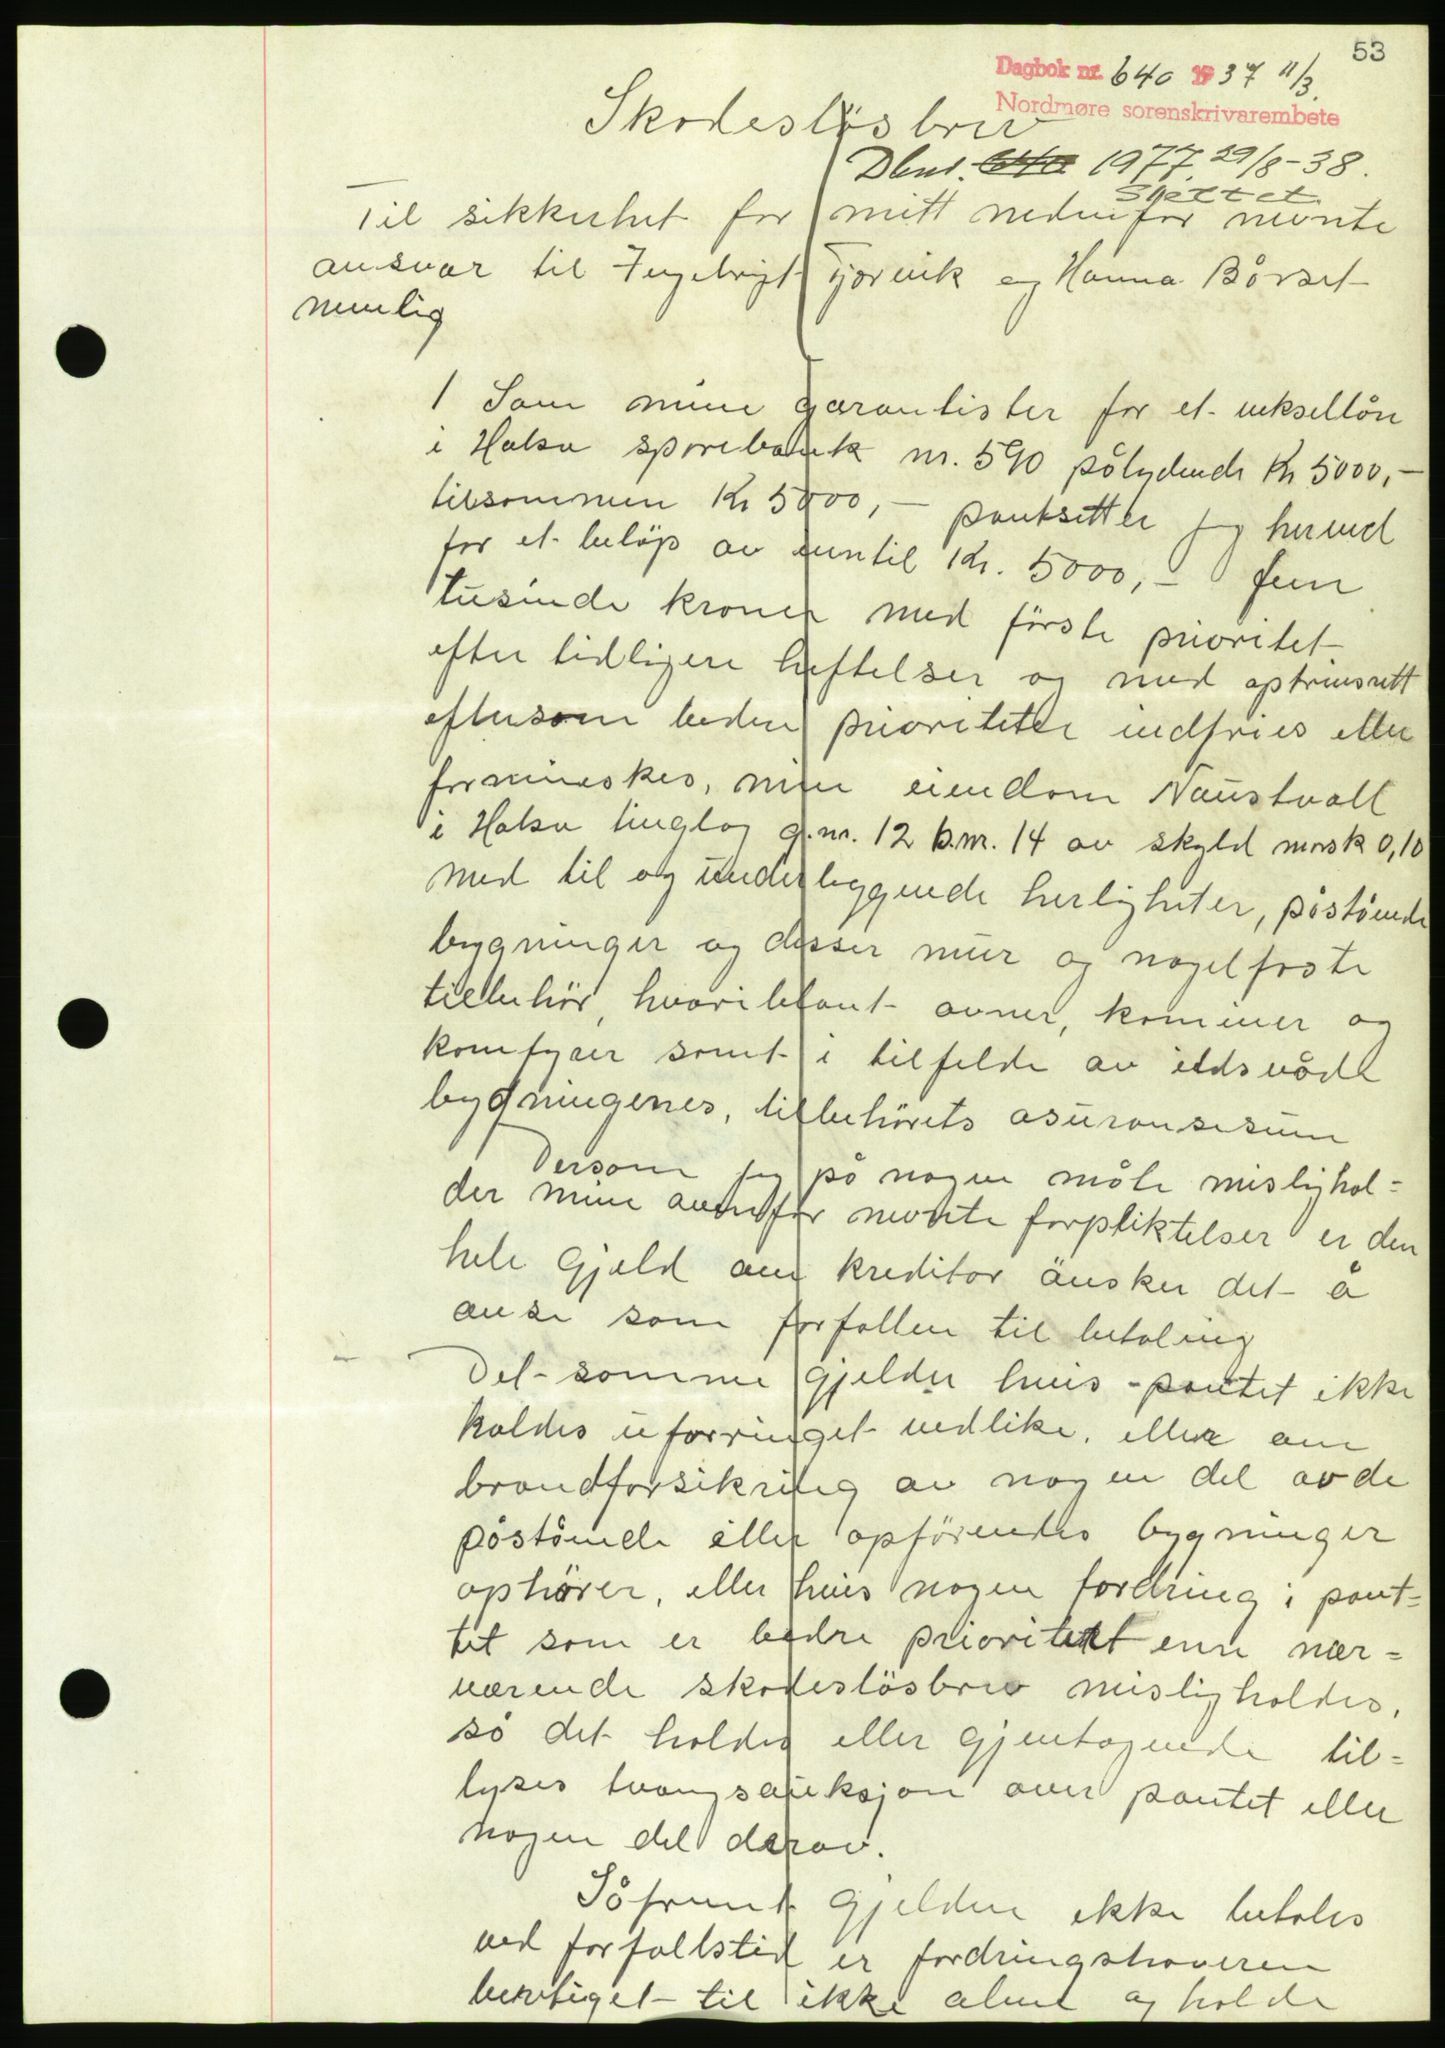 53
Dagbok nr. 640 1937 11/3.
Nordmøre sorenskrivarembete
Skadesløsbrev
Dbnr. 640 1977. 29/8-38.
Slettet.
Til sikkerhet for mitt nedenfor nevnte
ansvar til Ingebrigt Tjørvik og Hanna Børset
nemlig
1 Som mine garantister for et veksellån
i Halsa sparebank nr. 590 pålydende Kr 5000,-
tilsammen Kr 5000,- pantsetter jeg herved
for et beløp av inntil Kr. 5000,- fem
tusinde kroner med første prioritet
efter tidligere heftelser og med optrinsrett
eftersom bedre prioriteter indfries eller
forminskes, min eiendom Naustvoll
i Halsa tinglag g.nr. 12 b.nr. 14 av skyld mrk 0,10
med til og underliggende herligheter, påstående
bygninger og disses mur og nagelfaste
tilbehør, hvoriblant ovner, kominer og
komfyrer samt i tilfelde av ildsvåde
bygningenes, tilbehørets asuransesum
Dersom jeg på nogen måte mislighol=
der mine ovenfor nevnte forpliktelser er den
hele gjeld om kreditor ønsker det å
anse som forfallen til betaling
Det samme gjelder hvis pantet ikke
holdes uforringet vedlike, eller om
brandforsikring av nogen del av de
påstående eller opførendes bygninger
ophører, eller hvis nogen fordring i pant=
tet som er bedre prioritert enn nær=
værende skadesløsbrev misligholdes,
så det holdes eller gjentagende til=
lyses tvangsauksjon over pantet eller
nogen del derav.
Såfremt gjelden ikke betales
ved forfallstid er fordringshaveren
berettiget til ikke alene og holde